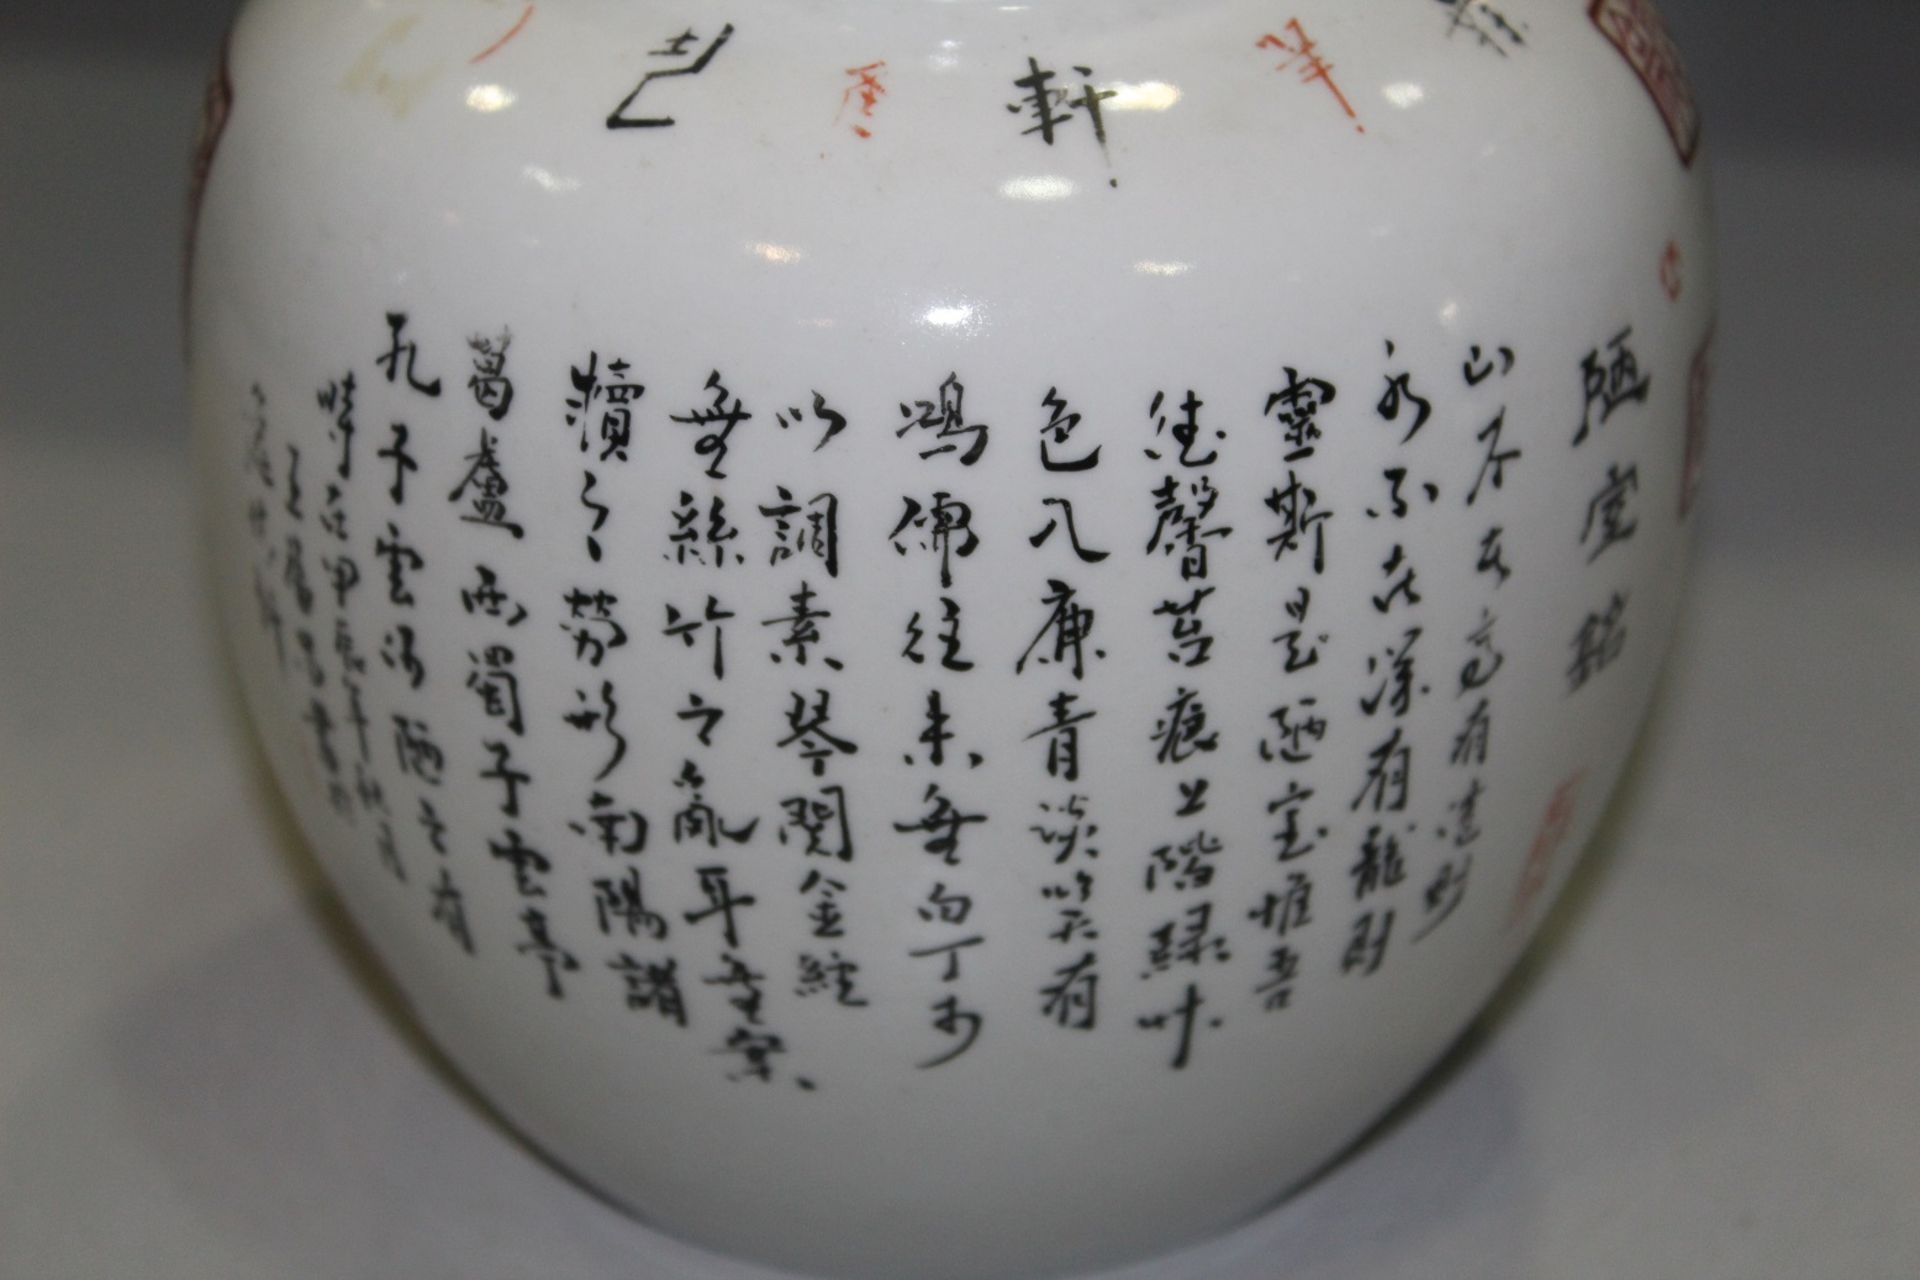 軒
陋室銘
山不在高有仙則
水不在深有龍則
靈斯是陋室惟吾
德馨苔痕上階綠叶
色入廉青談笑有
鴻儒往來無白丁可
以調素琴閱金經
無絲竹之亂耳無案
牘之勞形南陽諸
葛廬西蜀子雲亭
孔子云何陋之有
時在甲辰年秋月